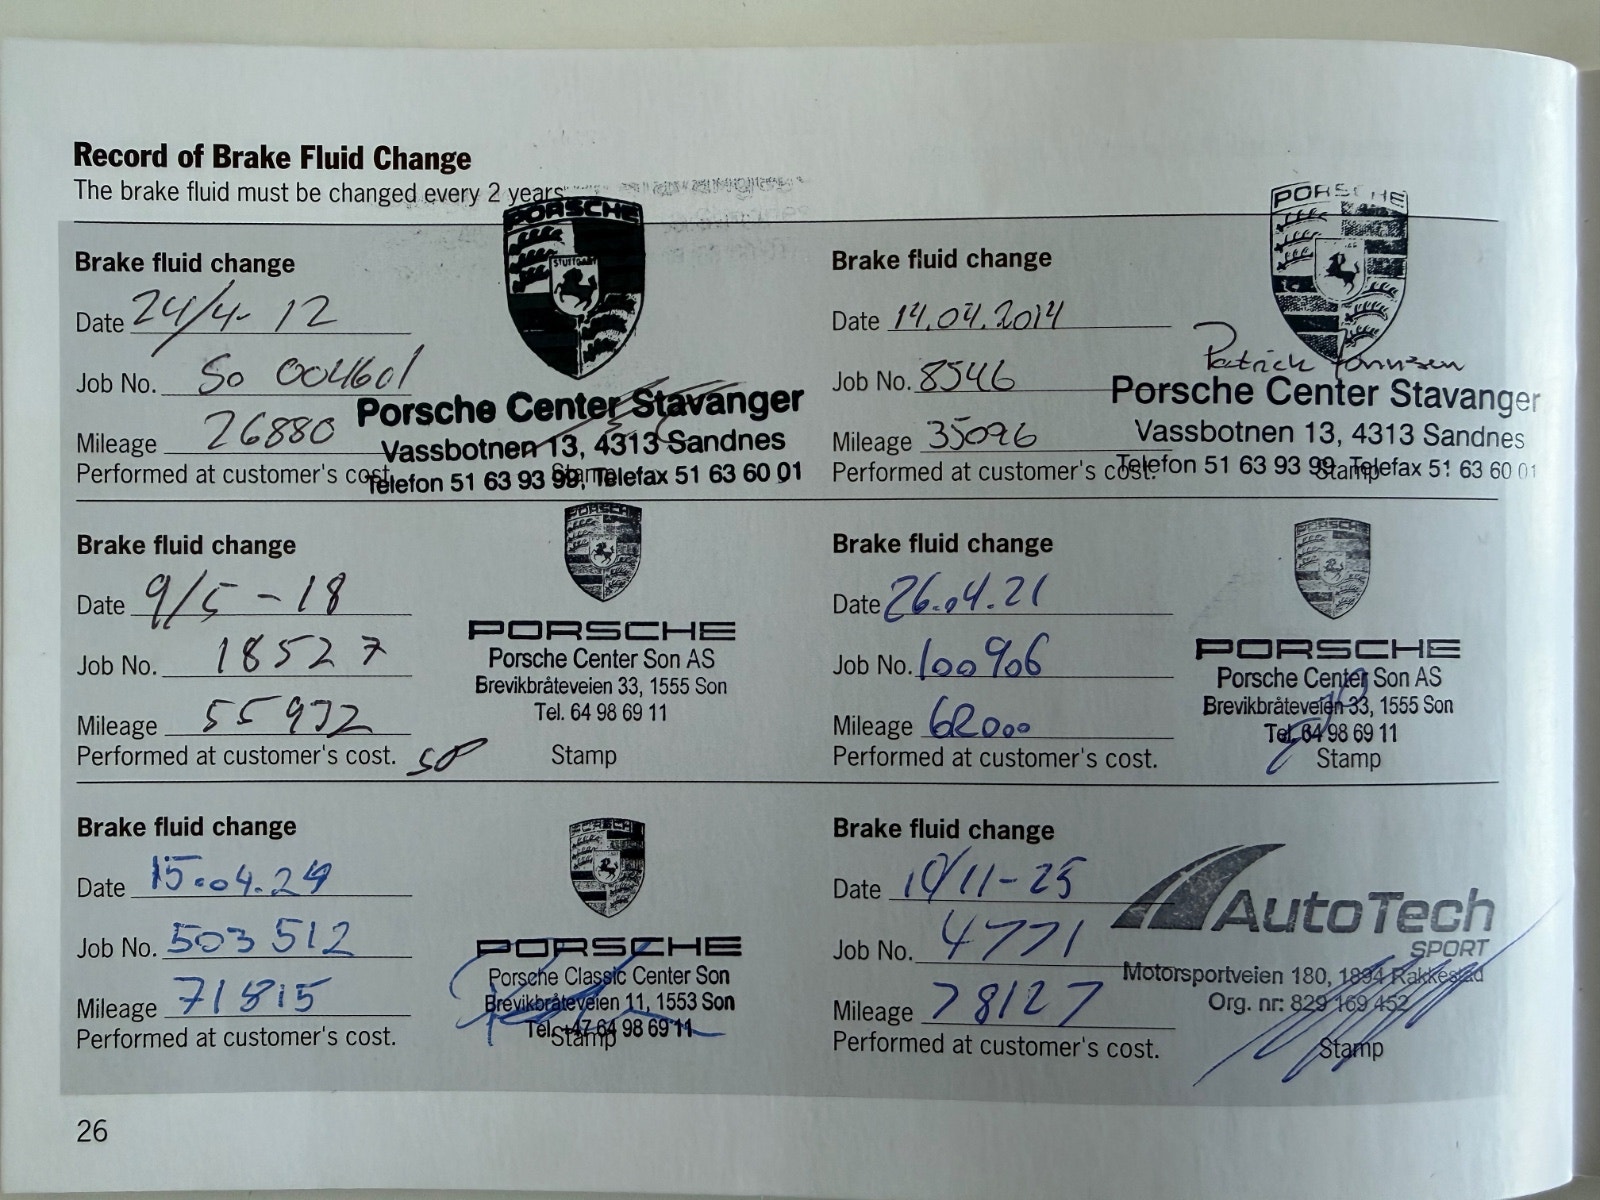 Record of Brake Fluid Change
The brake fluid must be changed every 2 years.
Brake fluid change
Date 24/4-12
Job No. So 004601
Mileage 26880
Performed at customer's cost.
PORSCHE
STUTTGART
Porsche Center Stavanger
Vassbotnen 13, 4313 Sandnes
Telefon 51 63 93 99, Telefax 51 63 60 01
Stamp
Brake fluid change
Date 14.04.2014
Job No. 8546
Mileage 35096
Performed at customer's cost.
PORSCHE
Patrick
Porsche Center Stavanger
Vassbotnen 13, 4313 Sandnes
Telefon 51 63 93 99, Telefax 51 63 60 01
Stamp
Brake fluid change
Date 9/5-18
Job No. 18527
Mileage 55932
Performed at customer's cost.
PORSCHE
PORSCHE
Porsche Center Son AS
Brevikbråteveien 33, 1555 Son
Tel. 64 98 69 11
Stamp
Brake fluid change
Date 26.04.21
Job No. 100906
Mileage 62000
Performed at customer's cost.
PORSCHE
PORSCHE
Porsche Center Son AS
Brevikbråteveien 33, 1555 Son
Tel. 64 98 69 11
Stamp
Brake fluid change
Date 15.04.24
Job No. 503512
Mileage 71815
Performed at customer's cost.
PORSCHE
PORSCHE
Porsche Classic Center Son
Brevikbråteveien 11, 1553 Son
Tel. +47 64 98 69 11
Stamp
Brake fluid change
Date 10/11-25
Job No. 4771
Mileage 78127
Performed at customer's cost.
AutoTech
SPORT
Motorsportveien 180, 1894 Rakkestad
Org. nr: 829 169 452
Stamp
26